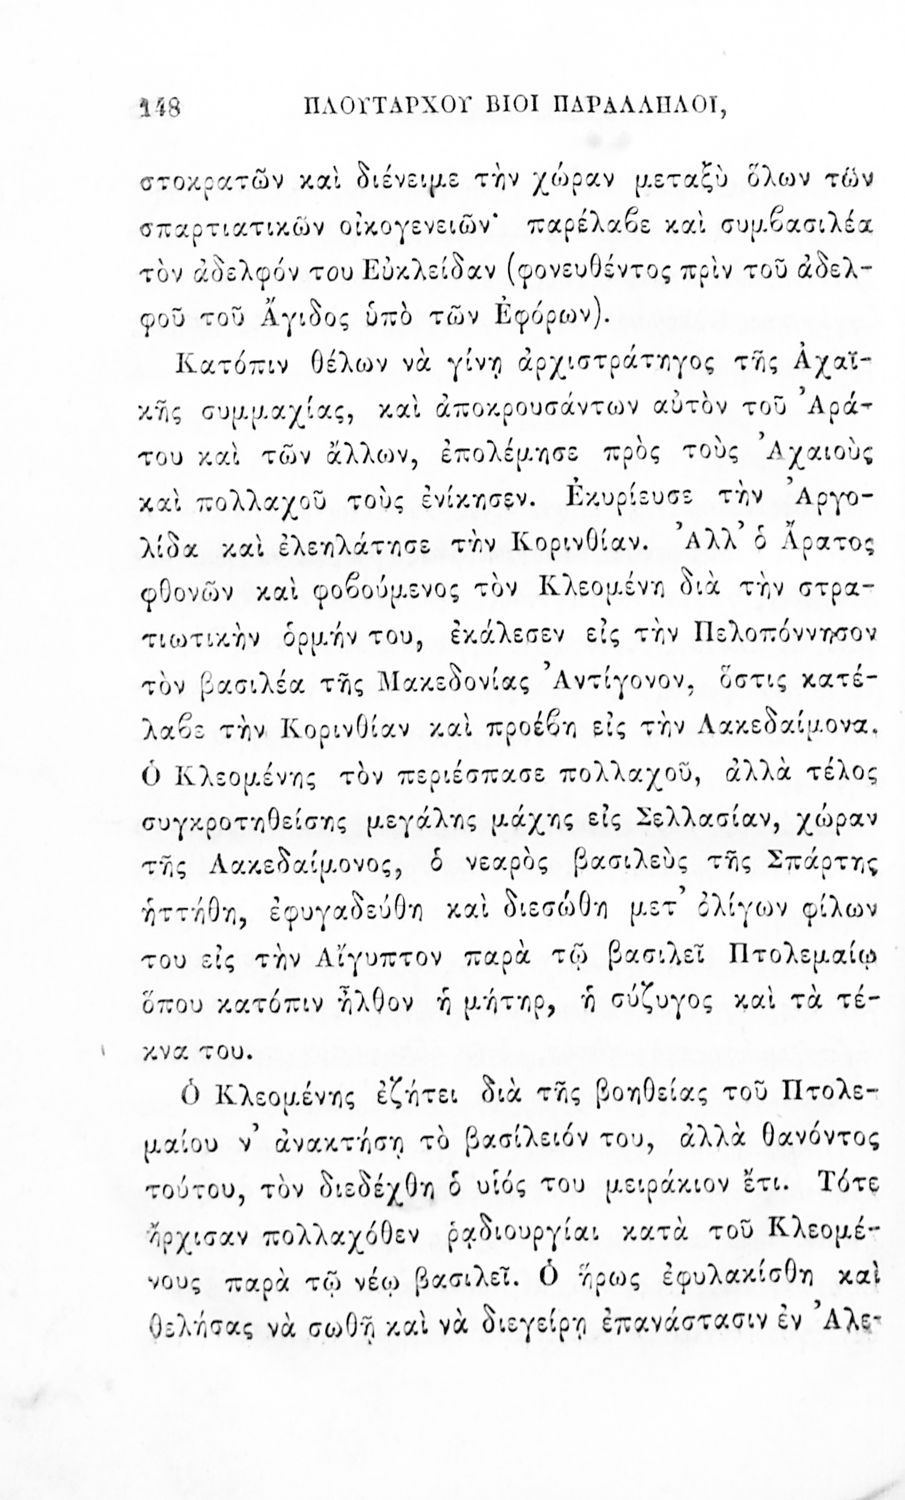 148 ΠΛΟΥΤΑΡΧΟΥ ΒΙΟΙ ΠΑΡΑΛΛΗΛΟΙ,
στοκρατῶν καὶ διένειμε τὴν χώραν μεταξὺ ὅλων τῶν
σπαρτιατικῶν οἰκογενειῶν· παρέλαβε καὶ συμβασιλέα
τὸν ἀδελφόν του Εὐκλείδαν (φονευθέντος πρὶν τοῦ ἀδελ-
φοῦ τοῦ Ἄγιδος ὑπὸ τῶν Ἐφόρων).
Κατόπιν θέλων νὰ γίνῃ ἀρχιστράτηγος τῆς Ἀχαϊ-
κῆς συμμαχίας, καὶ ἀποκρουσάντων αὐτὸν τοῦ Ἀρά-
του καὶ τῶν ἄλλων, ἐπολέμησε πρὸς τοὺς Ἀχαιοὺς
καὶ πολλαχοῦ τοὺς ἐνίκησεν. Ἐκυρίευσε τὴν Ἀργο-
λίδα καὶ ἐλεηλάτησε τὴν Κορινθίαν. Ἀλλ’ ὁ Ἄρατος
φθονῶν καὶ φοβούμενος τὸν Κλεομένη διὰ τὴν στρα-
τιωτικὴν ὁρμήν του, ἐκάλεσεν εἰς τὴν Πελοπόννησον
τὸν βασιλέα τῆς Μακεδονίας Ἀντίγονον, ὅστις κατέ-
λαβε τὴν Κορινθίαν καὶ προέβη εἰς τὴν Λακεδαίμονα.
Ὁ Κλεομένης τὸν περιέσπασε πολλαχοῦ, ἀλλὰ τέλος
συγκροτηθείσης μεγάλης μάχης εἰς Σελλασίαν, χώραν
τῆς Λακεδαίμονος, ὁ νεαρὸς βασιλεὺς τῆς Σπάρτης
ἡττήθη, ἐφυγαδεύθη καὶ διεσώθη μετ’ ὀλίγων φίλων
του εἰς τὴν Αἴγυπτον παρὰ τῷ βασιλεῖ Πτολεμαίῳ
ὅπου κατόπιν ἦλθον ἡ μήτηρ, ἡ σύζυγος καὶ τὰ τέ-
κνα του.
Ὁ Κλεομένης ἐζήτει διὰ τῆς βοηθείας τοῦ Πτολε-
μαίου ν’ ἀνακτήσῃ τὸ βασίλειόν του, ἀλλὰ θανόντος
τούτου, τὸν διεδέχθη ὁ υἱός του μειράκιον ἔτι. Τότε
ἤρχισαν πολλαχόθεν ῥᾳδιουργίαι κατὰ τοῦ Κλεομέ-
νους παρὰ τῷ νέῳ βασιλεῖ. Ὁ ἥρως ἐφυλακίσθη καὶ
θελήσας νὰ σωθῇ καὶ νὰ διεγείρῃ ἐπανάστασιν ἐν Ἀλε-